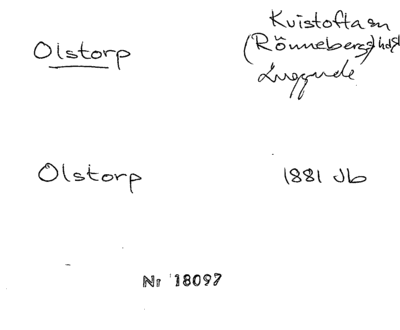 Olstorp
Kvistofta sn
(Rönnebergs) hd
Luggude
Olstorp
1881 Jb
Nr 18097